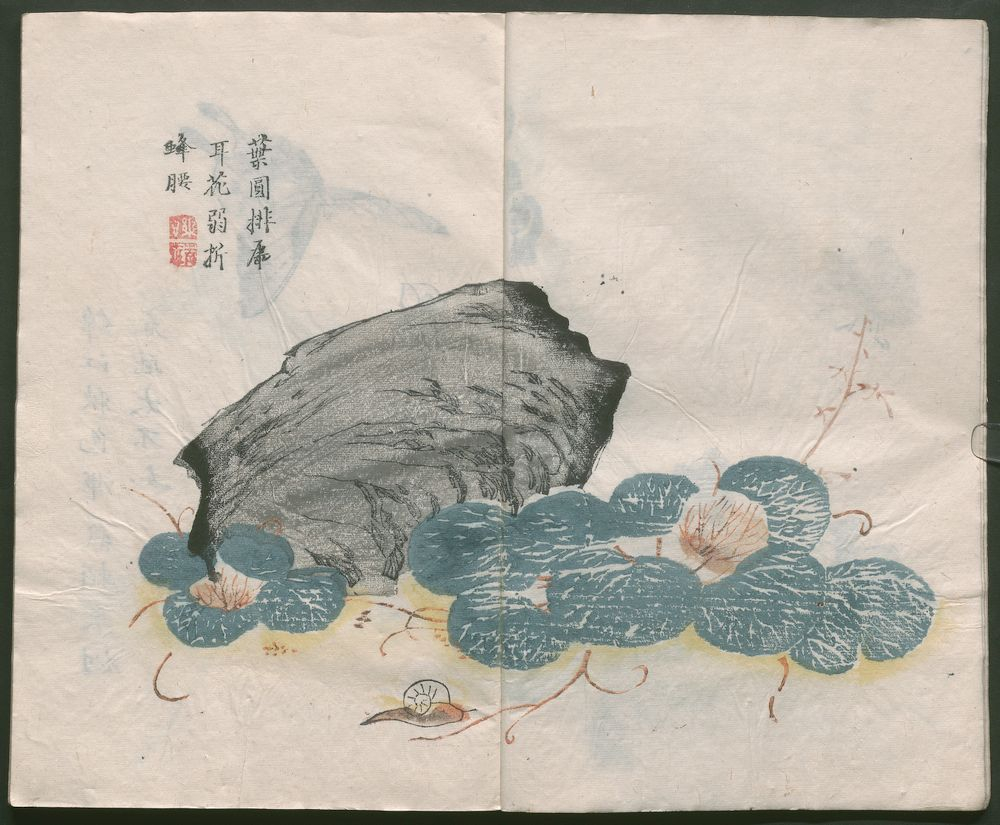 葉圓排
耳花弱折
蜂腰